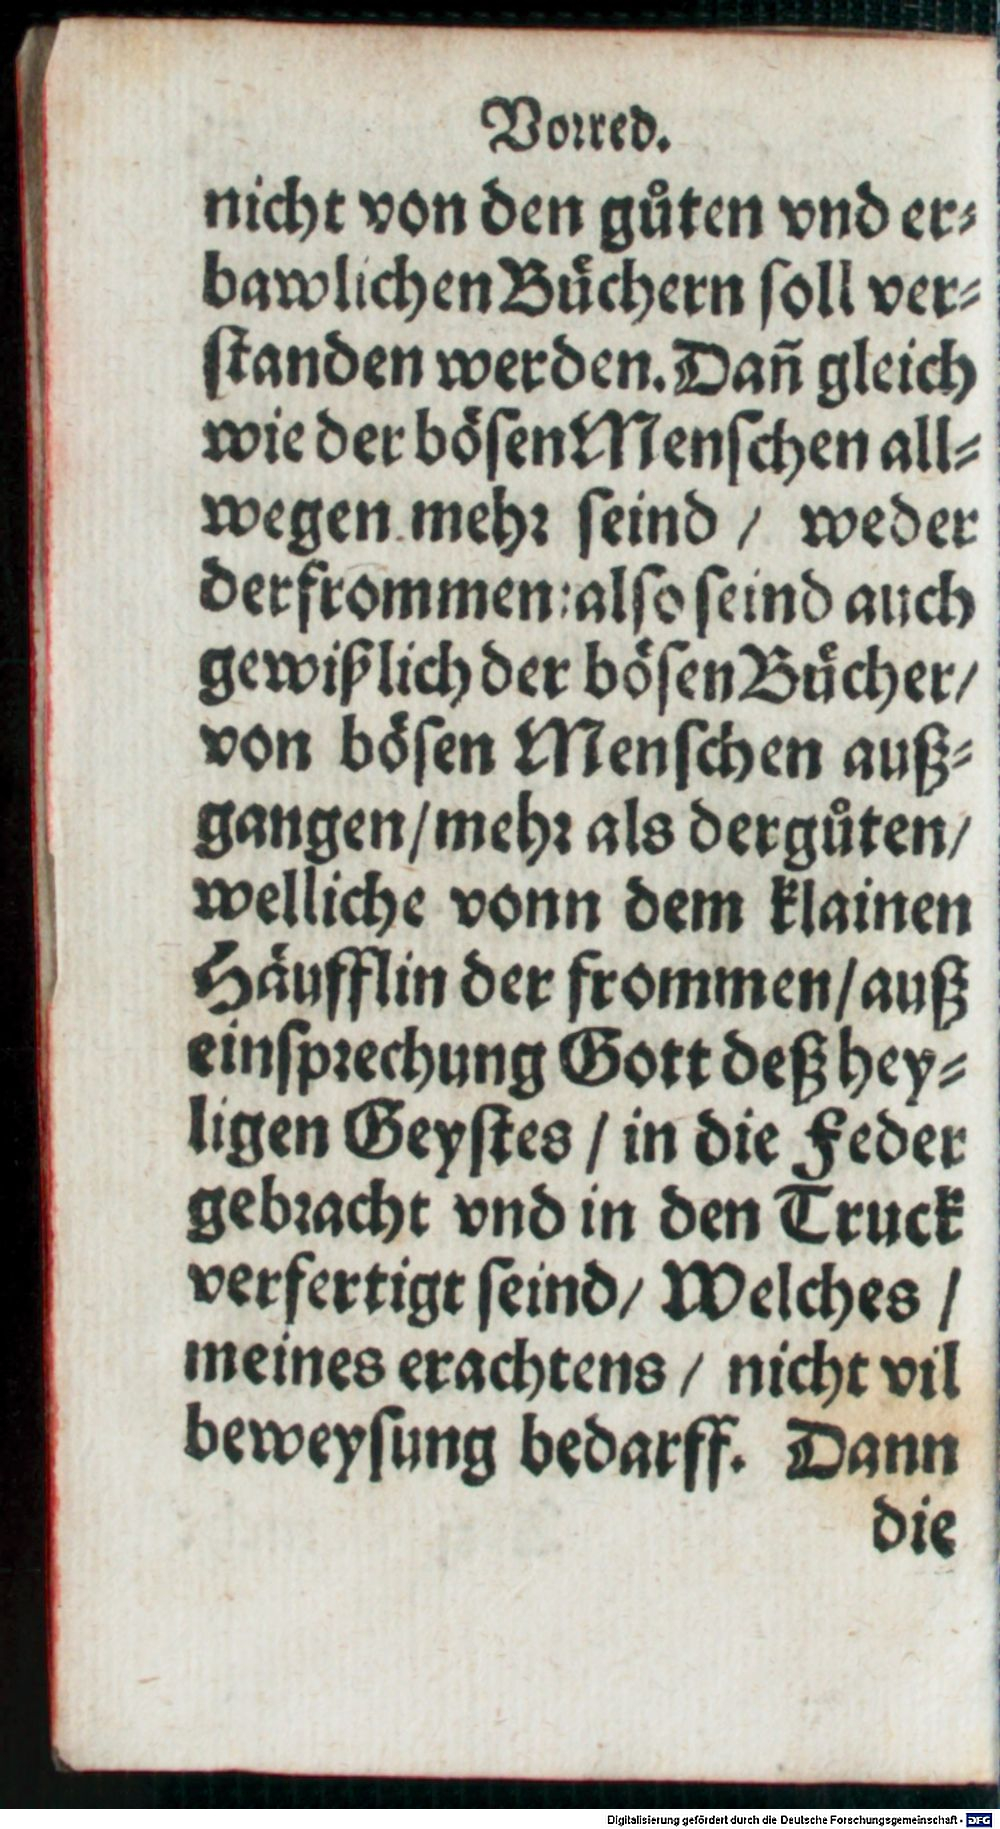 Vorred.
nicht von den gůten vnd er⸗
bawlichen Bůchern soll ver⸗
standen werden. Dañ gleich
wie der bösen Menschen all⸗
wegen mehr seind / weder
der frommen: also seind auch
gewißlich der bösen Bücher/
von bösen Menschen auß⸗
gangen/ mehr als der gůten/
welliche vonn dem klainen
Häufflin der frommen/ auß
einsprechung Gott deß hey⸗
ligen Geystes / in die Feder
gebracht vnd in den Truck
verfertigt seind/ Welches /
meines erachtens / nicht vil
beweysung bedarff. Dann
die
Digitalisierung gefördert durch die Deutsche Forschungsgemeinschaft - DFG